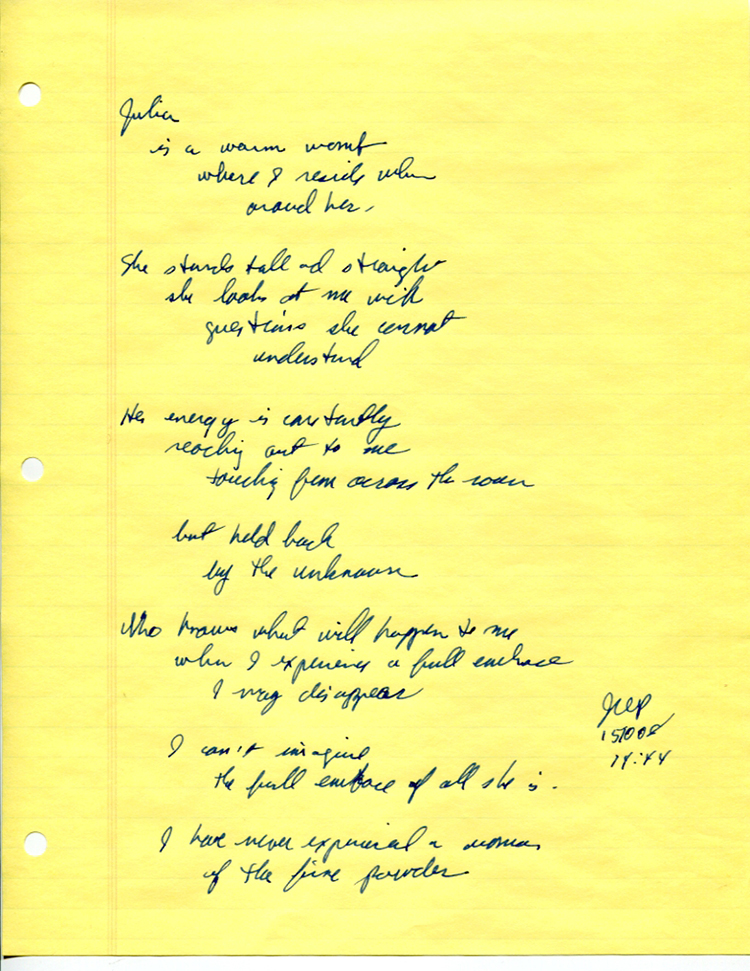 Julia
is a warm womb
where I reside when
around her.
She stands tall and straight
she looks at me with
questions she cannot
understand
Her energy is constantly
reaching out to me
touching from across the room
but held back
by the unknown
Who knows what will happen to me
when I experience a full embrace
I may disappear
I can't imagine
the full embrace of all she is.
I have never experienced a woman
of the fine powder
14:44